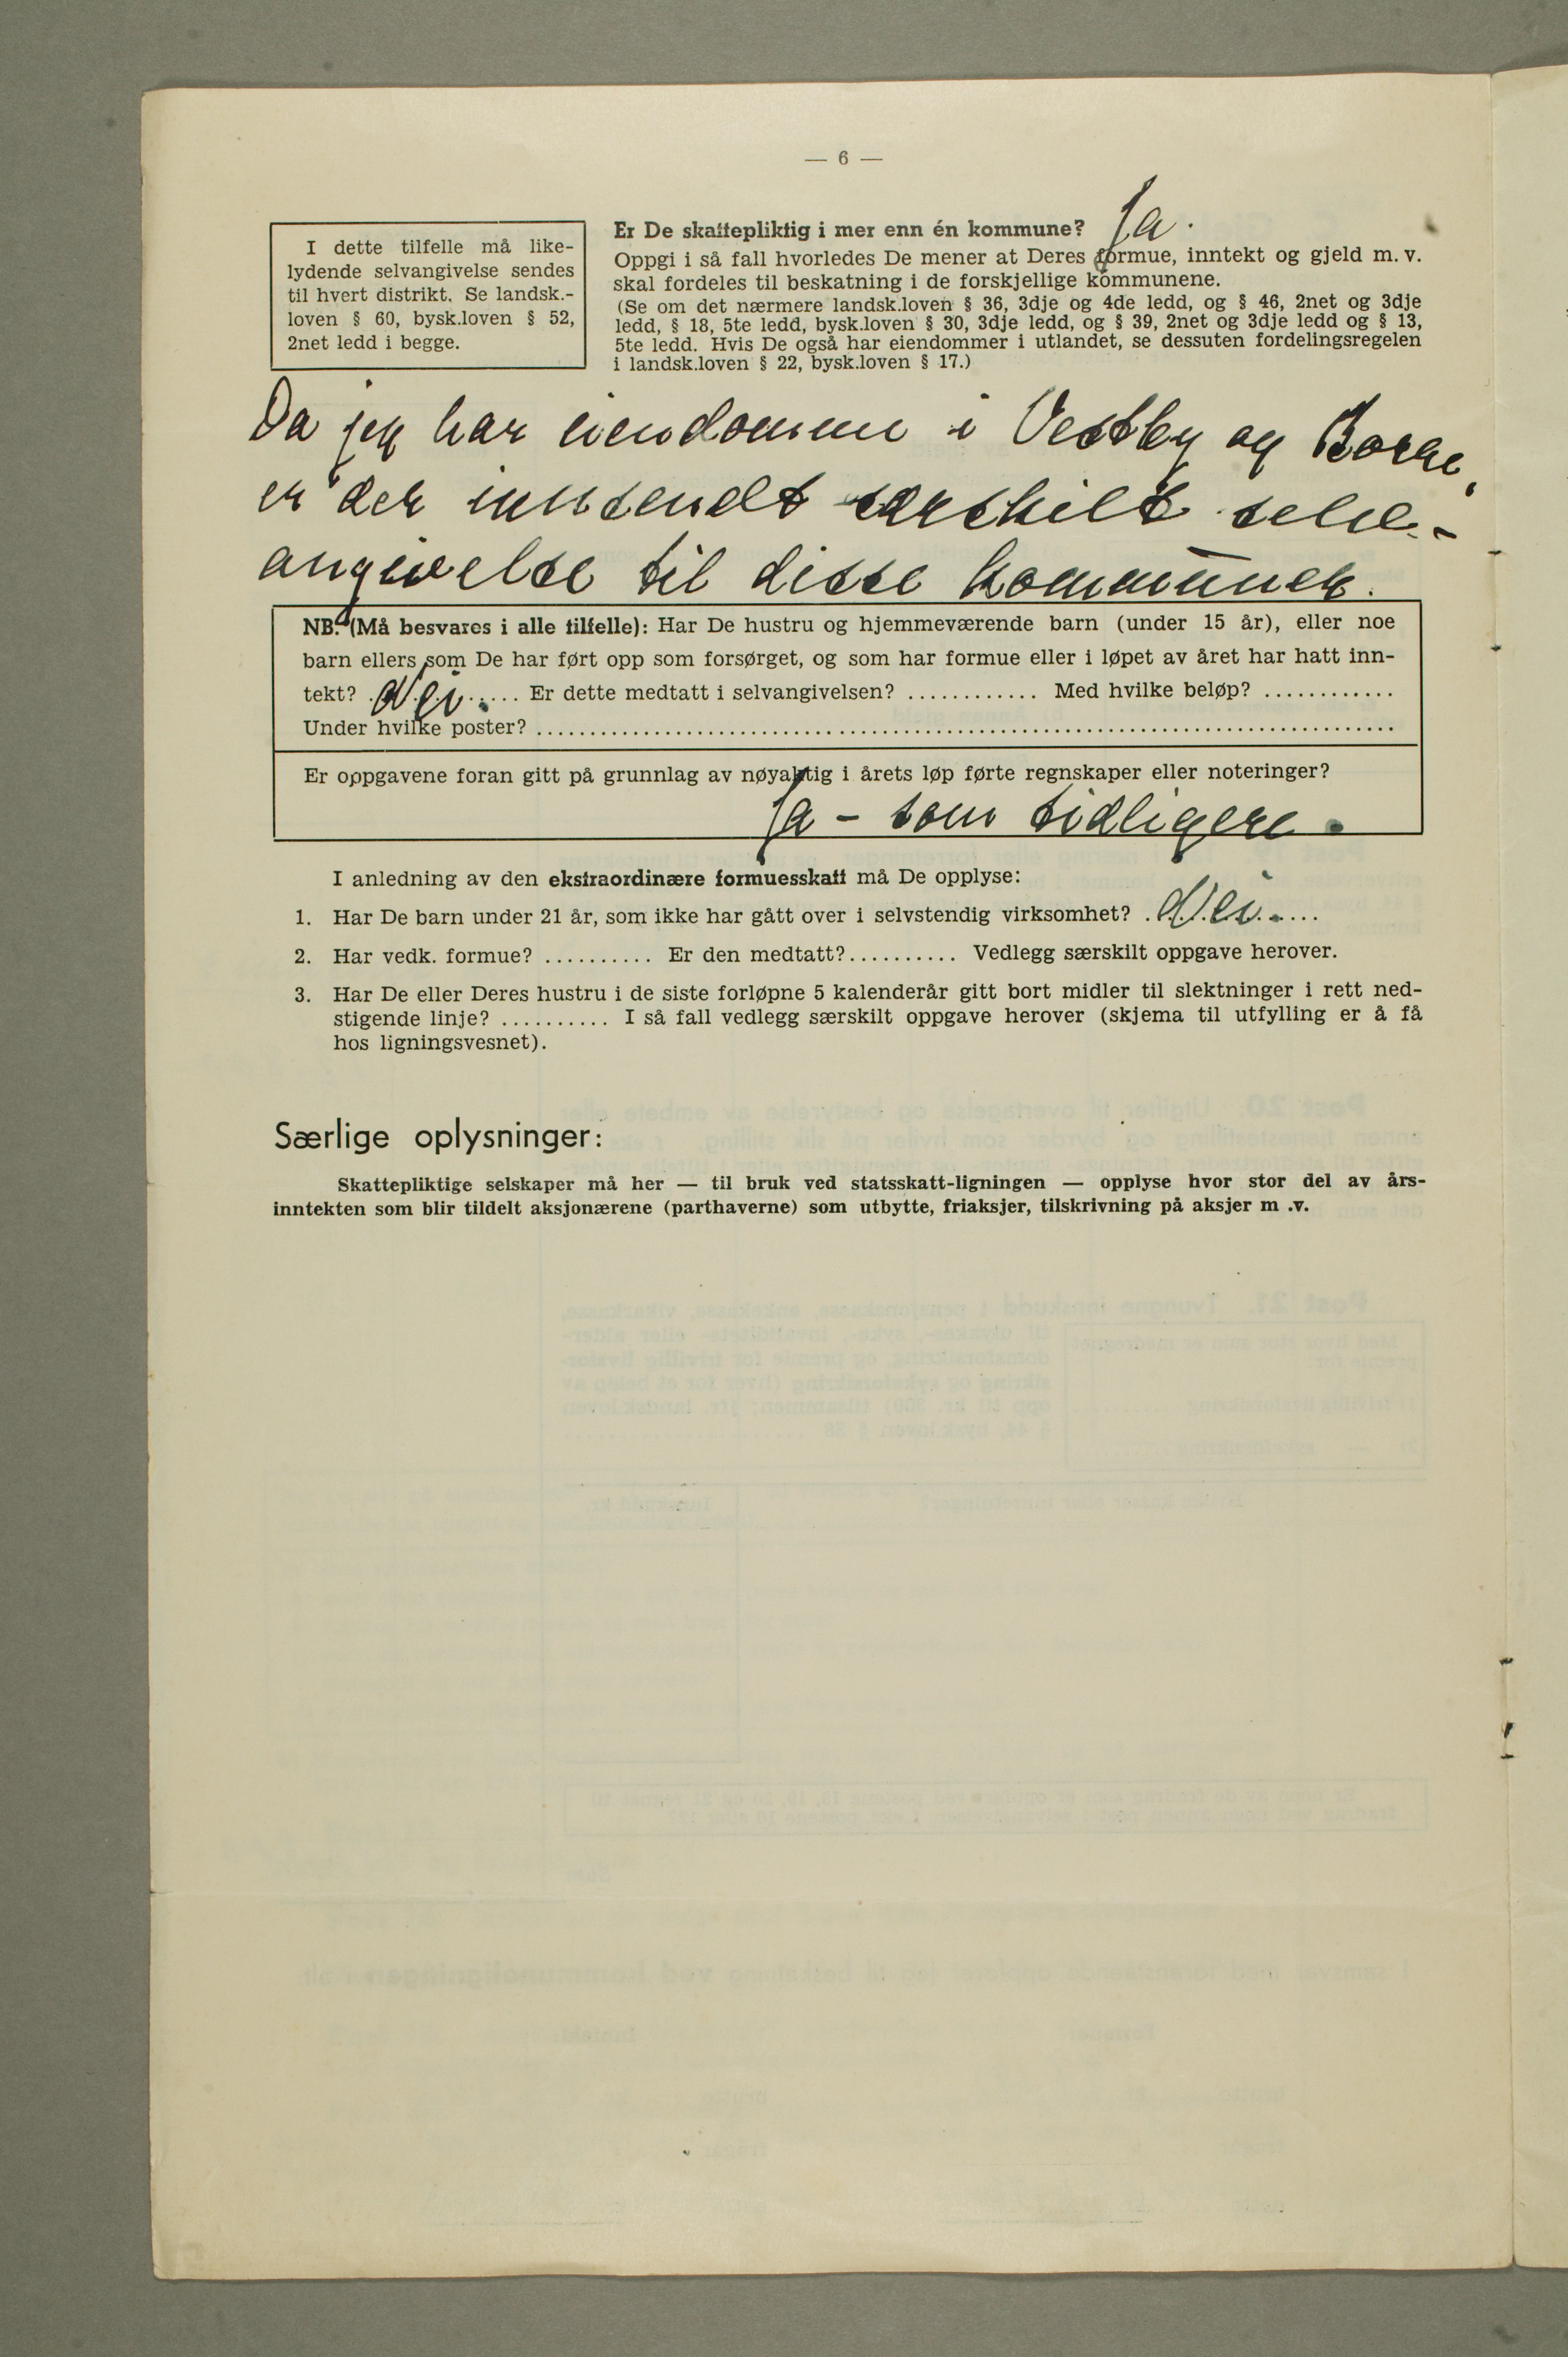 — 6 —
I dette tilfelle må like-
lydende selvangivelse sendes
til hvert distrikt. Se landsk.-
loven § 60, bysk.loven § 52,
2net ledd i begge.
Er De skattepliktig i mer enn én kommune? Ja.
Oppgi i så fall hvorledes De mener at Deres formue, inntekt og gjeld m. v.
skal fordeles til beskatning i de forskjellige kommunene.
(Se om det nærmere landsk.loven § 36, 3dje og 4de ledd, og § 46, 2net og 3dje
ledd, § 18, 5te ledd, bysk.loven § 30, 3dje ledd, og § 39, 2net og 3dje ledd og § 13,
5te ledd. Hvis De også har eiendommer i utlandet, se dessuten fordelingsregelen
i landsk.loven § 22, bysk.loven § 17.)
Da jeg har eiendomme i Vestby og Borge,
er der innsendt særskilt selv-
angivelse til disse kommuner.
NB. (Må besvares i alle tilfelle): Har De hustru og hjemmeværende barn (under 15 år), eller noe
barn ellers som De har ført opp som forsørget, og som har formue eller i løpet av året har hatt inn-
tekt? Nei. .... Er dette medtatt i selvangivelsen? ............ Med hvilke beløp? ............
Under hvilke poster? ................................................................................
Er oppgavene foran gitt på grunnlag av nøyaktig i årets løp førte regnskaper eller noteringer?
Ja - som tidligere.
I anledning av den ekstraordinære formuesskatt må De opplyse:
1. Har De barn under 21 år, som ikke har gått over i selvstendig virksomhet? . Nei. ....
2. Har vedk. formue? .......... Er den medtatt?.......... Vedlegg særskilt oppgave herover.
3. Har De eller Deres hustru i de siste forløpne 5 kalenderår gitt bort midler til slektninger i rett ned-
stigende linje? .......... I så fall vedlegg særskilt oppgave herover (skjema til utfylling er å få
hos ligningsvesnet).
Særlige oplysninger:
Skattepliktige selskaper må her — til bruk ved statsskatt-ligningen — opplyse hvor stor del av års-
inntekten som blir tildelt aksjonærene (parthaverne) som utbytte, friaksjer, tilskrivning på aksjer m .v.